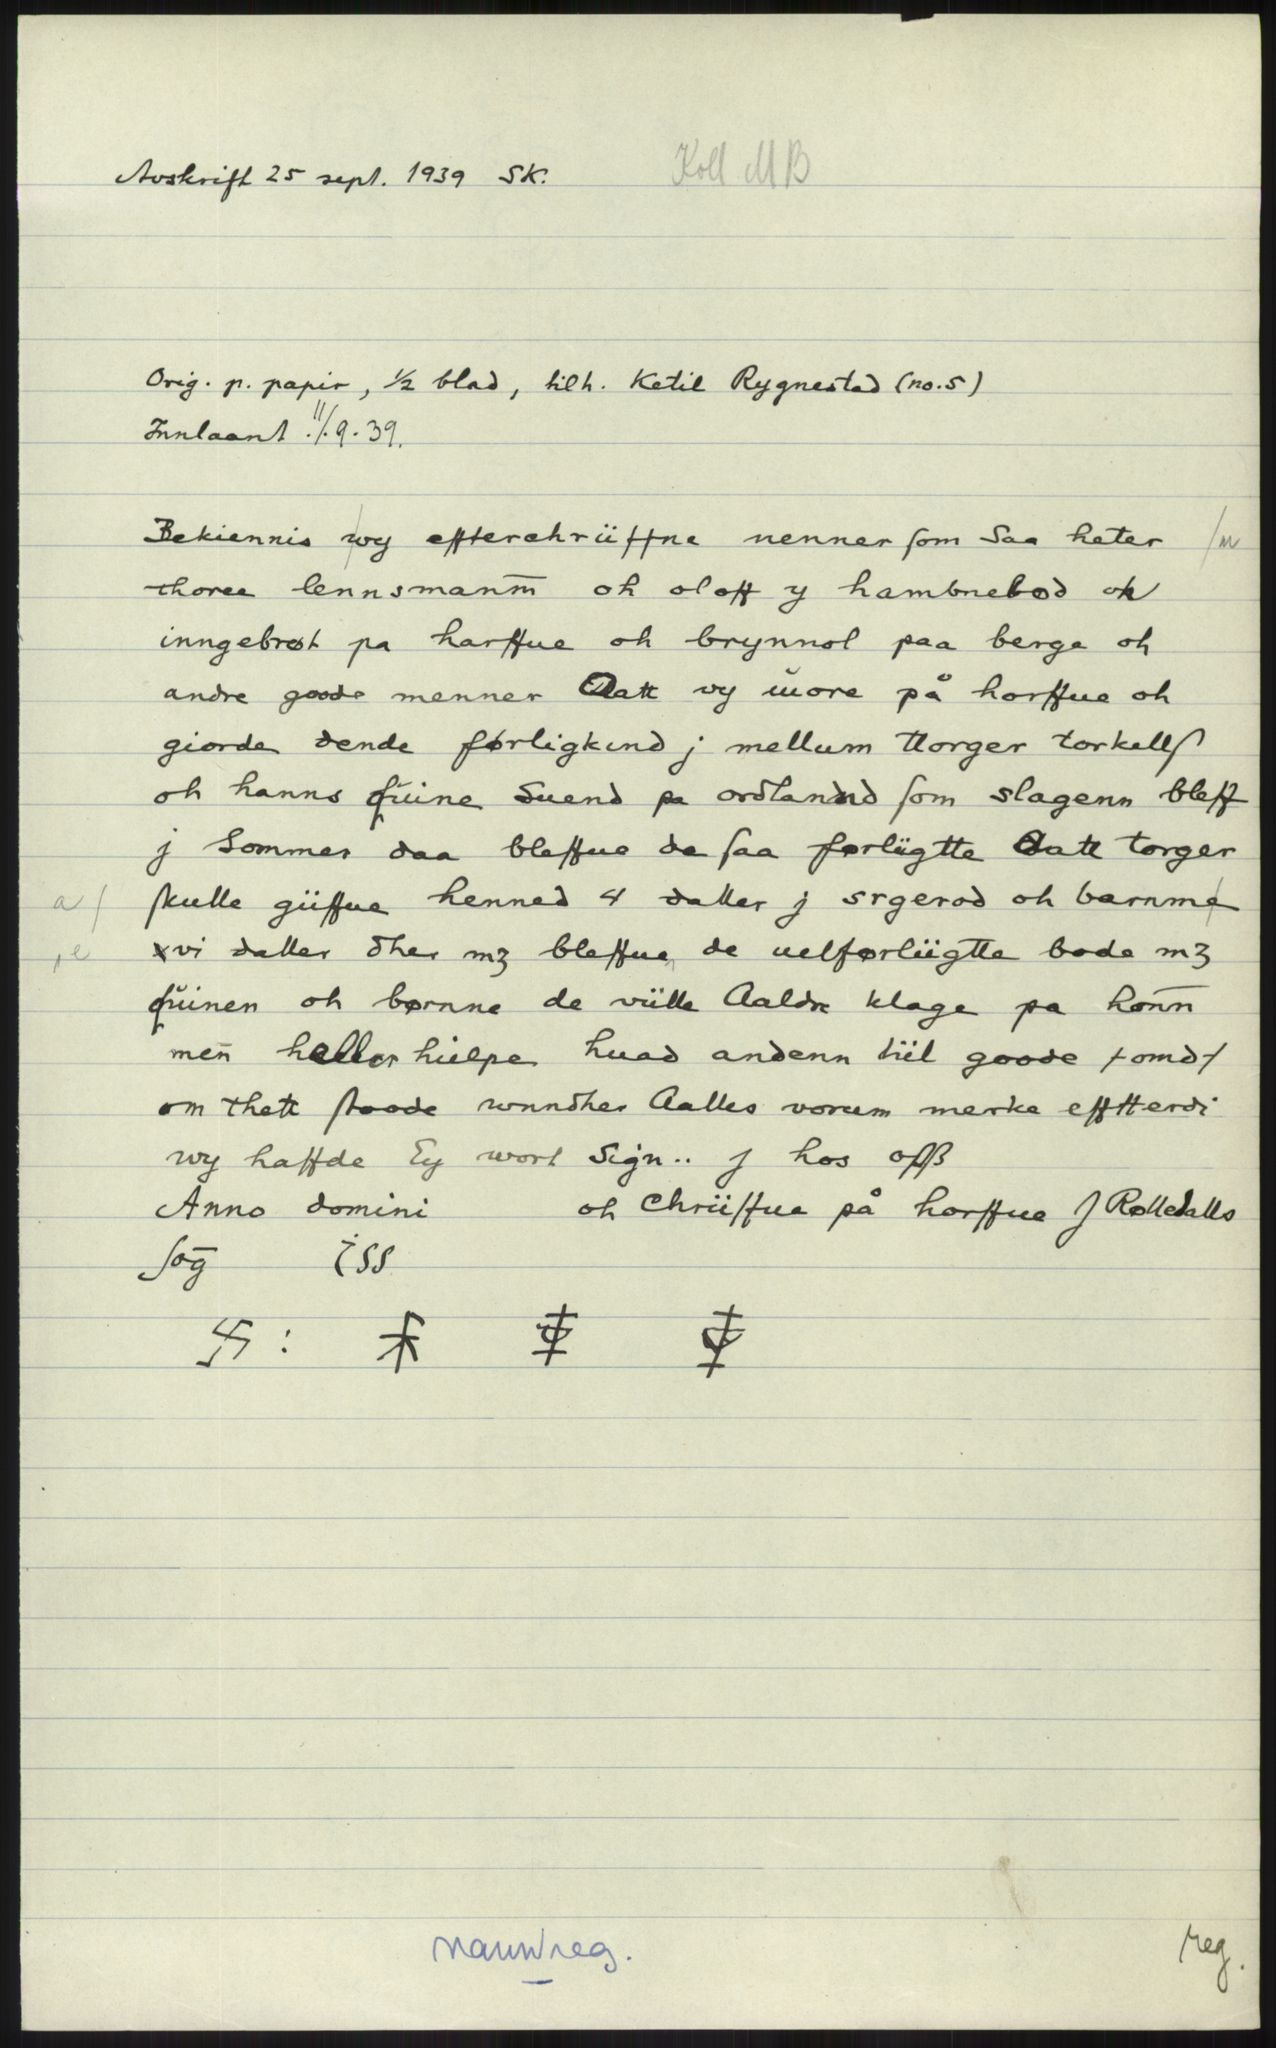 Avskrift 25 sept. 1939 SK.
Koll MB
Orig. p. papir, ½ blad, tilh. Ketil Rygnestad (no. 5)
Innlaant 11/9·39.
Bekiennis wy effterchrüffne nenner som Saa heter /m
thorea lennsmanm̄ oh oloff y hambnebod oh
inngebrøt pa harffue oh brynnol paa berge oh
andre goode menner Aatt vy üore på horffue oh
giorde dende førligkend j mellum ttorger torkells
oh hanns quine Suend pa ordlandnd som slagenn bleff
j Sommer daa bleffue de saa førlügtte Aatt torger
a/ skulle güffue henned 4 daller j srgerod oh barnme
,e xvi daller dher mꝫ bleffue, de uelførlügtte bode mꝫ
quinen oh børnne de vülle Aaldre klage pa honn̄
men̄ heller hielpe huad andenn tiil goode +omd+
om thett stoode wnndher Aalles vorum merke effterdi
wy haffde Ey wort Sign.. j hos oss
Anno domini oh Chrüffue på horffue J Rølledalls
soḡ iss
卐 :
navnreg.
reg.